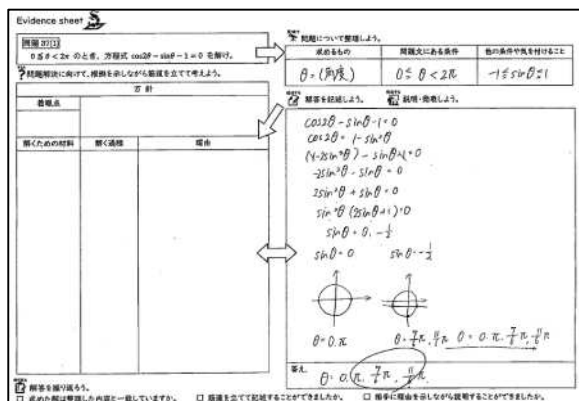 Evidence sheet
問題 37(1)
0≦θ<2π のとき、方程式 cos2θ−sinθ−1=0 を解け。
?問題解決に向けて、根拠を示しながら筋道を立てて考えよう。
方針
着眼点
解くための材料 解く過程 理由
問題について整理しよう。
求めるもの 問題文にある条件 他の条件や気を付けること
θ=(角度) 0≦θ<2π −1≦sinθ≦1
解答を記述しよう。 説明・発表しよう。
cos2θ−sinθ−1=0
cos2θ=1−sin²θ
−2sin²θ−sinθ=0
2sin²θ+sinθ=0
sin²θ(2sinθ+1)=0
sinθ=0, −1/2
sinθ=0 sinθ=−1/2
θ=0.π θ=7/6π, 11/6π θ=0.π.7/6π,11/6π
答え.
θ=0.π.7/6π,11/6π
解答を振り返ろう。
□ 求めた解は整理した内容と一致していますか。 □ 筋道を立てて記述することができましたか。 □ 相手に理由を示しながら説明することができましたか。